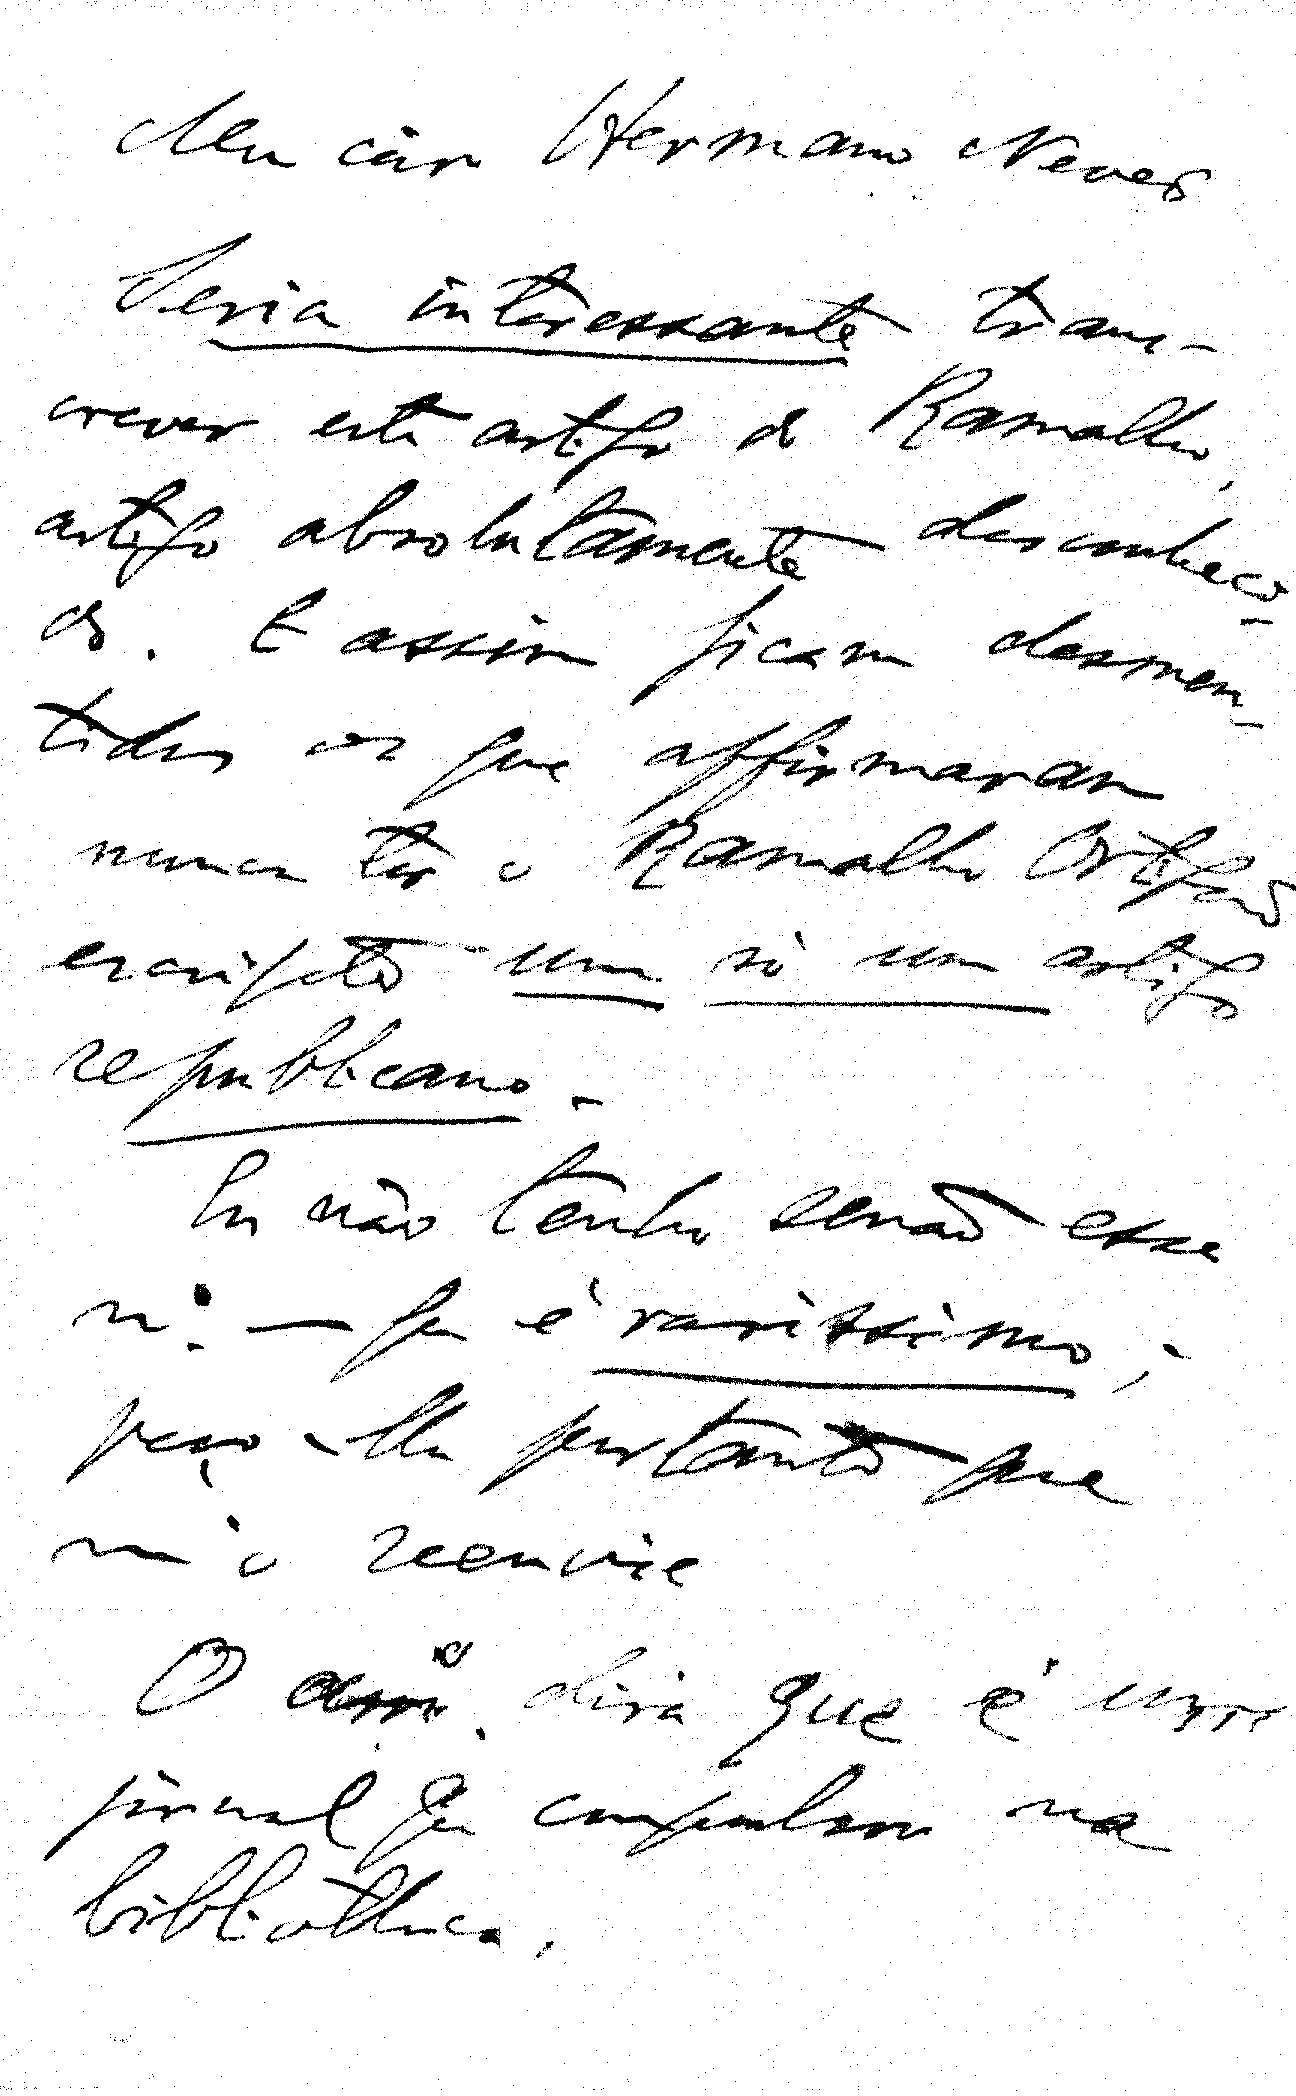 Meu caro Hermano Neves
Seria interessante trans-
crever este artigo de Ramalho,
artigo absolutamente desconheci-
do. E assim ficam desmen-
tidos os que affirmaram
nunca ter o Ramalho Ortigão
escripto um só um artigo
republicano.-
Eu não tenho senão esse
nº. — que é rarissimo;
peço-lhe portanto que
m'o reenvie
O dirá que é um
jornal que compulsou na
bibliotheca.